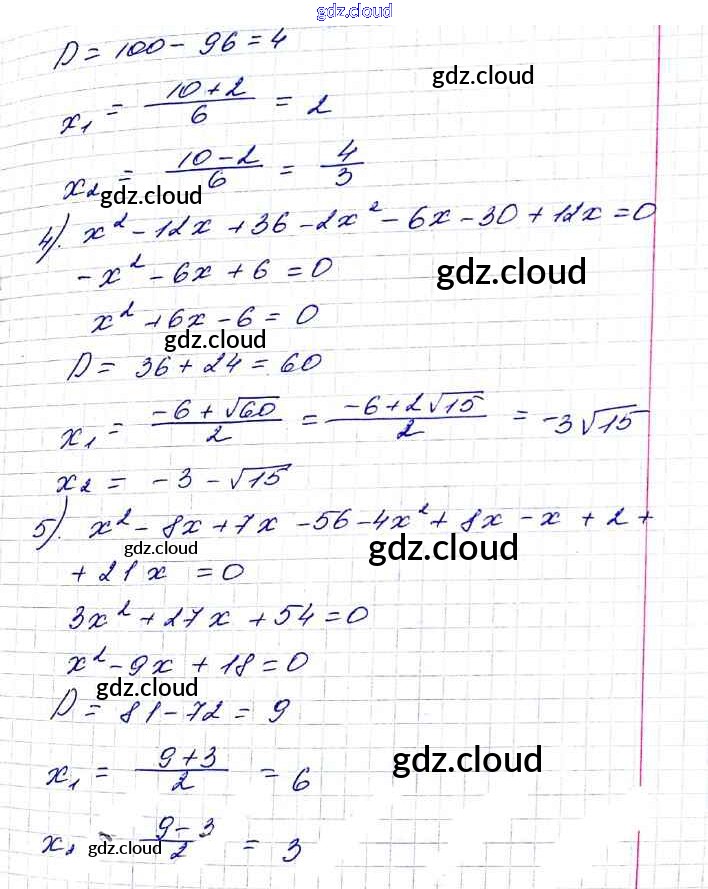 gdz.cloud
D = 100 - 96 = 4
gdz.cloud
x₁ = (10+2)/6 = 2
x₂ = (10-2)/6 = 4/3
gdz.cloud
4). x² - 12x + 36 - 2x² - 6x - 30 + 12x = 0
- x² - 6x + 6 = 0
gdz.cloud
x² + 6x - 6 = 0
gdz.cloud
D = 36 + 24 = 60
x₁ = (-6 + √60)/2 = (-6 + 2√15)/2 = -3√15
x₂ = -3 - √15
5). x² - 8x + 7x - 56 - 4x² + 8x - x + 2 +
gdz.cloud
gdz.cloud
+ 21x = 0
3x² + 27x + 54 = 0
x² - 9x + 18 = 0
gdz.cloud
D = 81 - 72 = 9
x₁ = (9+3)/2 = 6
gdz.cloud
x₂ = (9-3)/2 = 3
gdz.cloud